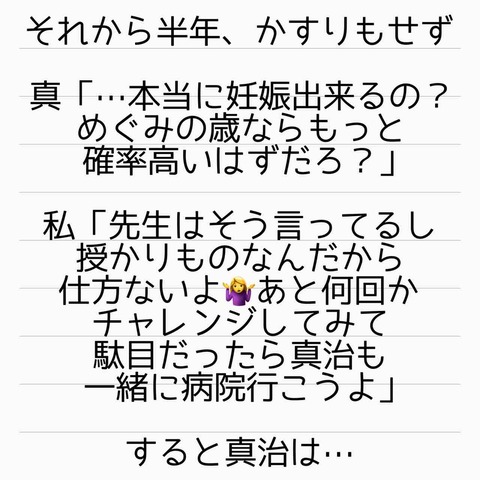 それから半年、かすりもせず
真「…本当に妊娠出来るの？
めぐみの歳ならもっと
確率高いはずだろ？」
私「先生はそう言ってるし
授かりものなんだから
仕方ないよ🤷‍♀️あと何回か
チャレンジしてみて
駄目だったら真治も
一緒に病院行こうよ」
すると真治は…